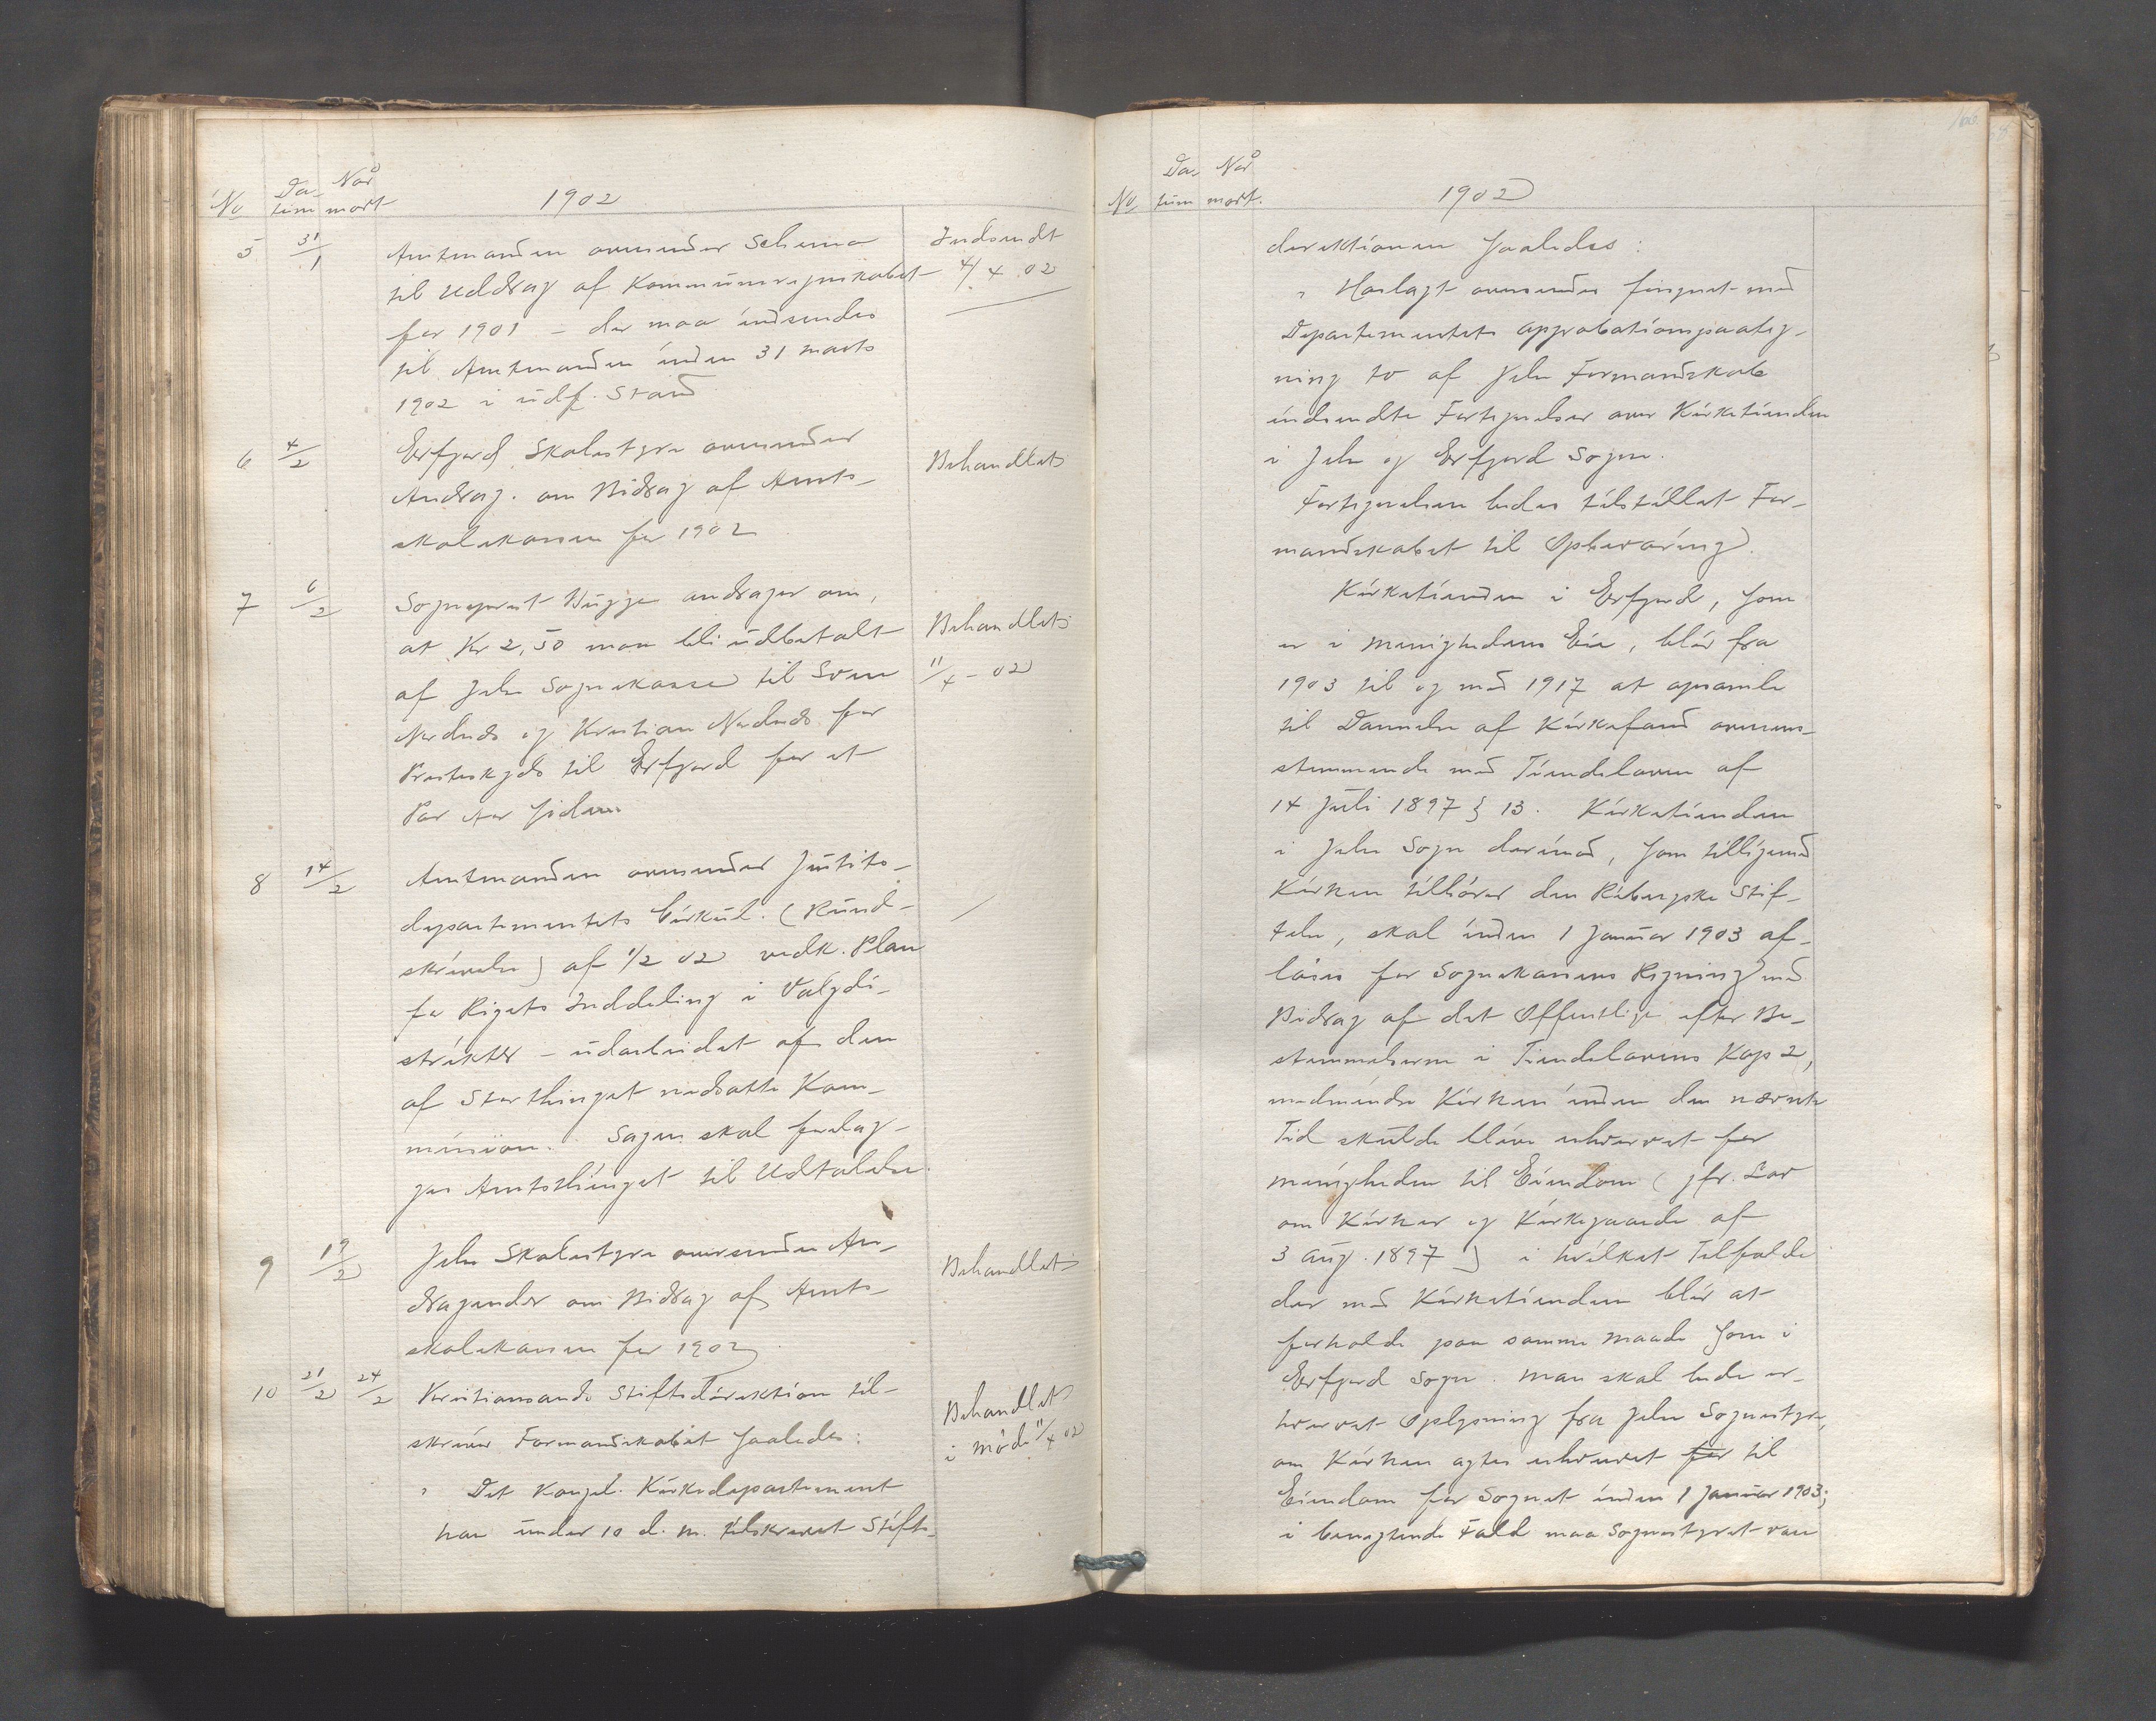 No Da- Naar
tum mott 1902
5 31/1 Amtmanden oversender Schema
til Uddrag af Kommuneregnskabet
for 1901 – der maa indsendes
til Amtmanden inden 31 marts
1902 i udf. Stand
Indsendt
4/4 02
6 4/2 Erfjord Skolestyre oversender
Andrag. om Bidrag af Amts-
skolekassen for 1902
Behandlet
7 6/2 Sogneprest Bugge andrager om,
at Kr 2,50 maa bli udbetalt
af Jelse Sognekasse til Sven
og Kristian for
Presteskyds til Erfjord for et
Par Aar siden
Behandlet
11/4 – 02
8 14/2 Amtmanden oversender Justits-
departementets Cirkul. (Rund-
skrivelse) af 1/2 02 vedk. Plan
for Rigets Inddeling i Valgdi-
strikter – udarbeidet af den
af Storthinget nedsatte Kom-
mission. Sagen skal forelæg-
ges Amtsthinget til Udtalelse.
9 19/2 Jelse Skolestyre oversender An-
dragender om Bidrag af Amts-
skolekassen for 1902
Behandlet
10 21/2 24/2 Kristiansands Stiftsdirektion til-
skriver Formandskabet saaledes:
" Det kongel. Kirkedepartement
har under 10 d. m. tilskrevet Stifts-
Behandlet
i møde 11/4 02
No Da- Naar
tum mott. 1902
direktionen saaledes:
" Hoslagt oversendes forsynet med
Departementets Approbationspaateg-
ning to af Jelse Formandskab
indsendte Fortegnelser over Kirketienden
i Jelse og Erfjord Sogne.
Fortegnelsen bedes tilstillet For-
mandskabet til Opbevaring.
Kirketienden i Erfjord, som
er i Menighedens Eie, blir fra
1903 til og med 1917 at opsamle
til Dannelse af Kirkefond overens-
stemmende med Tiendeloven af
14 Juli 1897 § 13. Kirketienden
i Jelse Sogn derimod, som tilligemed
Kirken tilhører den Ribergske Stif-
telse, skal inden 1 Januar 1903 af-
løses for Sognekassens Regning med
Bidrag af det Offentlige efter Be-
stemmelserne i Tiendelovens Kap 2,
medmindre Kirken inden den nævnte
Tid skulde blive erhvervet for
Menigheden til Eiendom (jfr. Lov
om Kirker og Kirkegaarde af
3 Aug. 1897) i hvilket Tilfælde
der med Kirketienden blir at
forholde paa samme Maade som i
Erfjord Sogn. Man skal bede er-
hvervet Oplysning fra Jelse Sognestyre,
om Kirken agtes erhvervet for til
Eiendom for Sognet inden 1 Januar 1903;
i benægtende Fald maa Sognestyret være